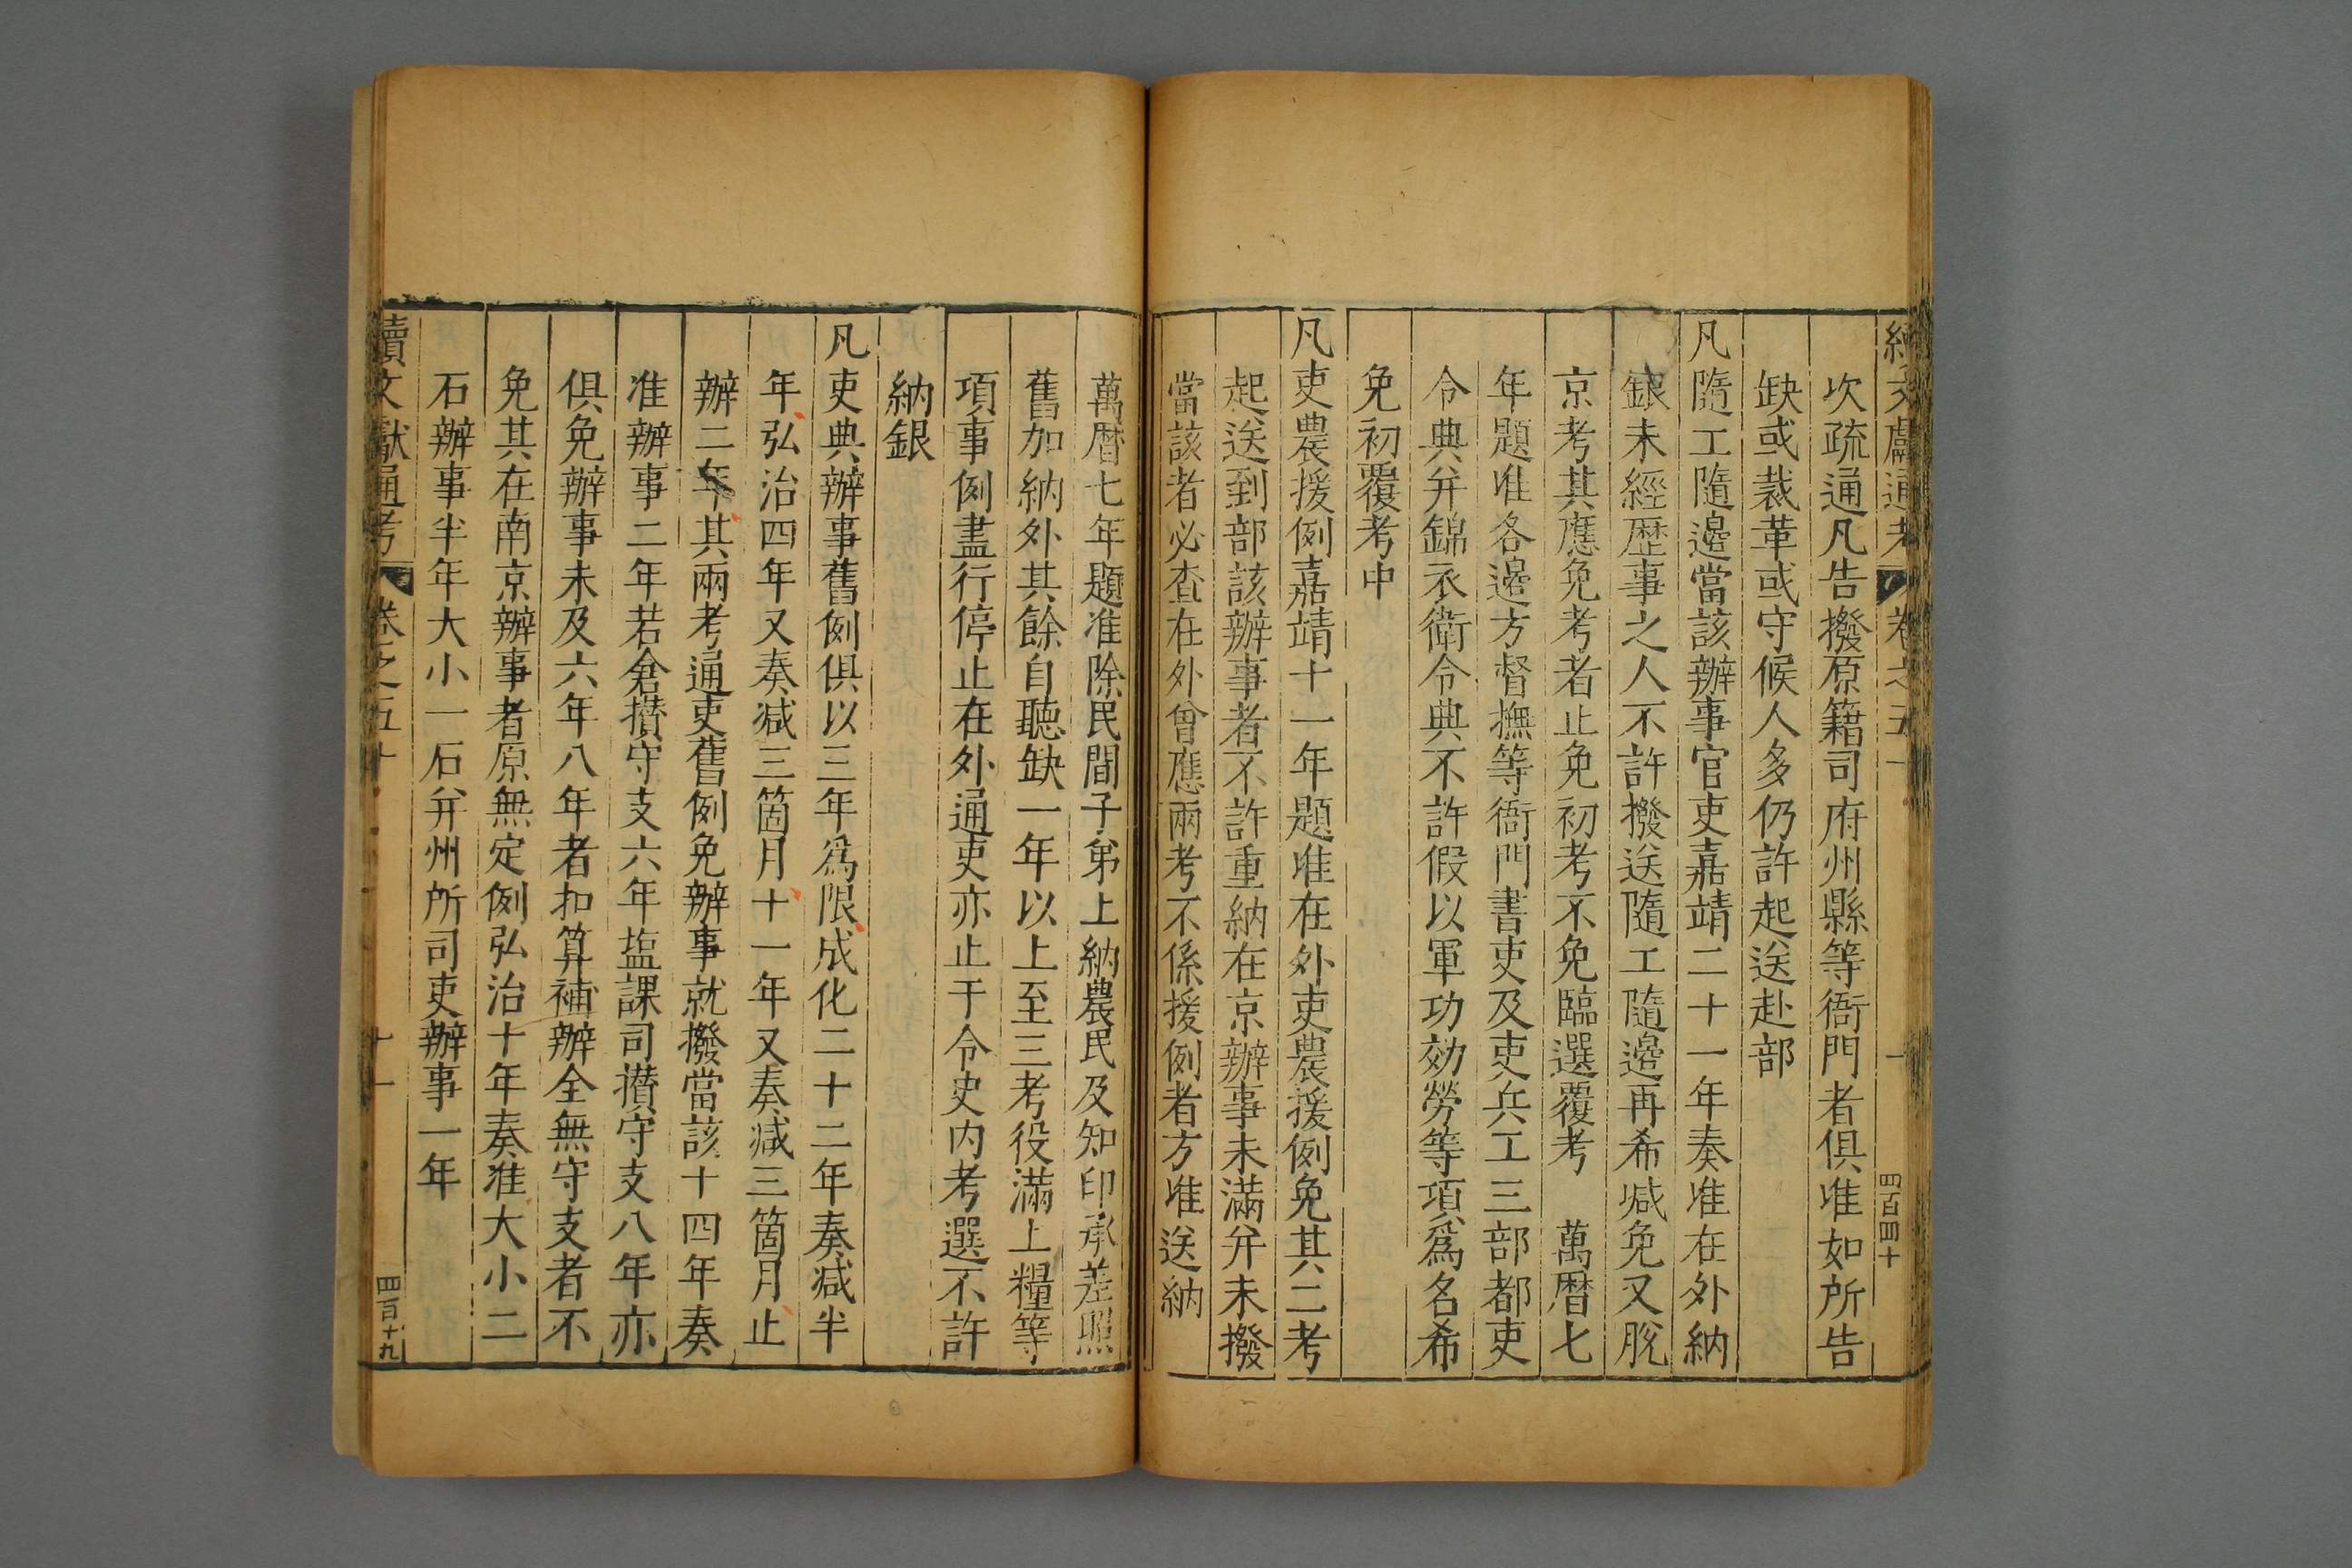 續文獻通考 卷之五十 四百四十
次疏通凡告撥原籍司府州縣等衙門者俱准如所告
缺或裁革或守候人多仍許起送赴部
凡隨工隨邊當該辦事官吏嘉靖二十一年奏准在外納
銀未經歷事之人不許撥送隨工隨邊再希減免又脫
京考其應免考者止免初考不免臨選覆考 萬曆七
年題准各邊方督撫等衙門書吏及吏兵工三部都吏
令典并錦衣衛令典不許假以軍功効勞等項爲名希
免初覆考中
凡吏農援例嘉靖十一年題准在外吏農援例免其二考
起送到部該辦事者不許重納在京辦事未滿并未撥
當該者必查在外曾應兩考不係援例者方准送納
萬曆七年題准除民間子弟上納農民及知印承差照
舊加納外其餘自聽缺一年以上至三考役滿上糧等
項事例盡行停止在外通吏亦止于令史内考選不許
納銀
凡吏典辦事舊例俱以三年爲限成化二十二年奏減半
年弘治四年又奏減三箇月十一年又奏減三箇月止
辦二年其兩考通吏舊例免辦事就撥當該十四年奏
准辦事二年若倉攢守支六年塩課司攢守支八年亦
俱免辦事未及六年八年者扣算補辦全無守支者不
免其在南京辦事者原無定例弘治十年奏准大小二
石辦事半年大小一石并州所司吏辦事一年
續文獻通考 卷之五十 十一 四百十九